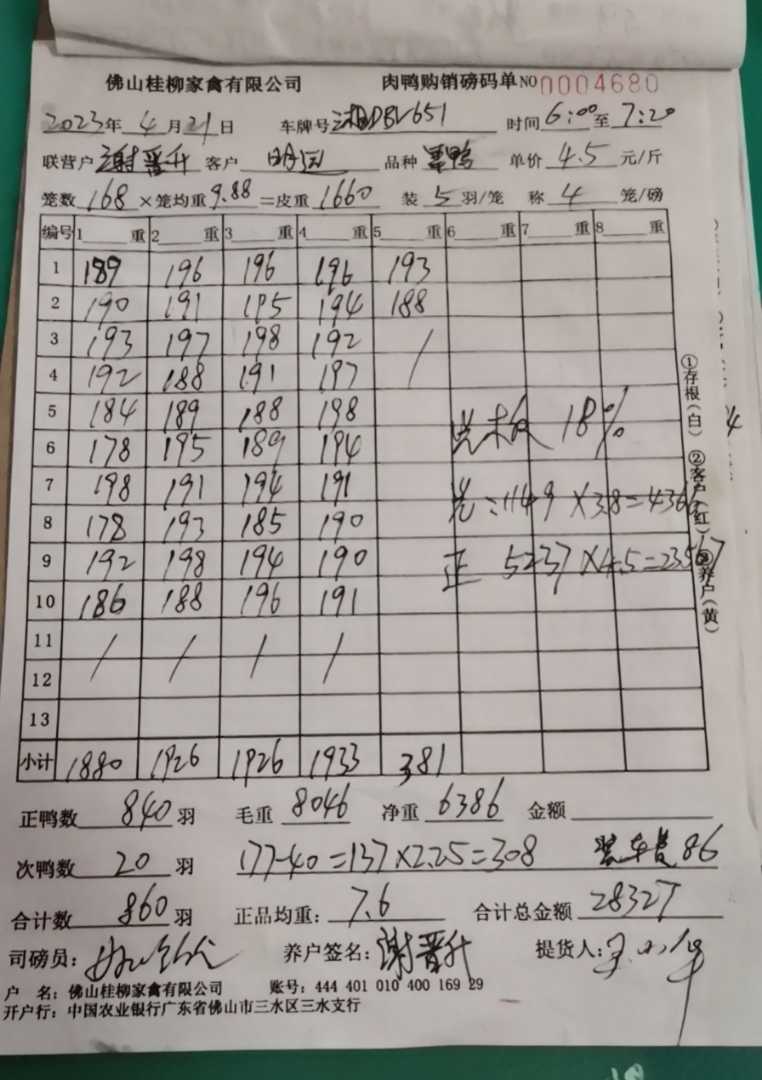 佛山桂柳家禽有限公司 肉鸭购销磅码单 NO 0004680
2023年 4月21日 车牌号 湘DBV651 时间 6:00 至 7:20
联营户 谢晋升 客户 明 品种 鸭 单价 4.5 元/斤
笼数 168 ×笼均重 9.88 =皮重 1660 装 5 羽/笼 称 4 笼/磅
编号 1 重 2 重 3 重 4 重 5 重 6 重 7 重 8 重
1 189 196 196 196 193
2 190 191 195 194 188
3 193 197 198 192 /
4 192 188 191 197
5 184 189 188 198
6 178 195 189 194
7 198 191 194 191
8 178 193 185 190
9 192 198 194 190
10 186 188 196 191
11 / / / /
12
13
小计 1880 1926 1926 1933 381
光 18%
光:1149×3.8=4366
正 5237×4.5=23567
①存根(白) ②客户(红) ③养户(黄)
正鸭数 840 羽 毛重 8046 净重 6386 金额
次鸭数 20 羽 177-40=137×2.25=308 装车费 86
合计数 860 羽 正品均重: 7.6 合计总金额 28327
司磅员: 养户签名: 谢晋升 提货人:
户 名: 佛山桂柳家禽有限公司 账号: 444 401 010 400 169 29
开户行: 中国农业银行广东省佛山市三水区三水支行